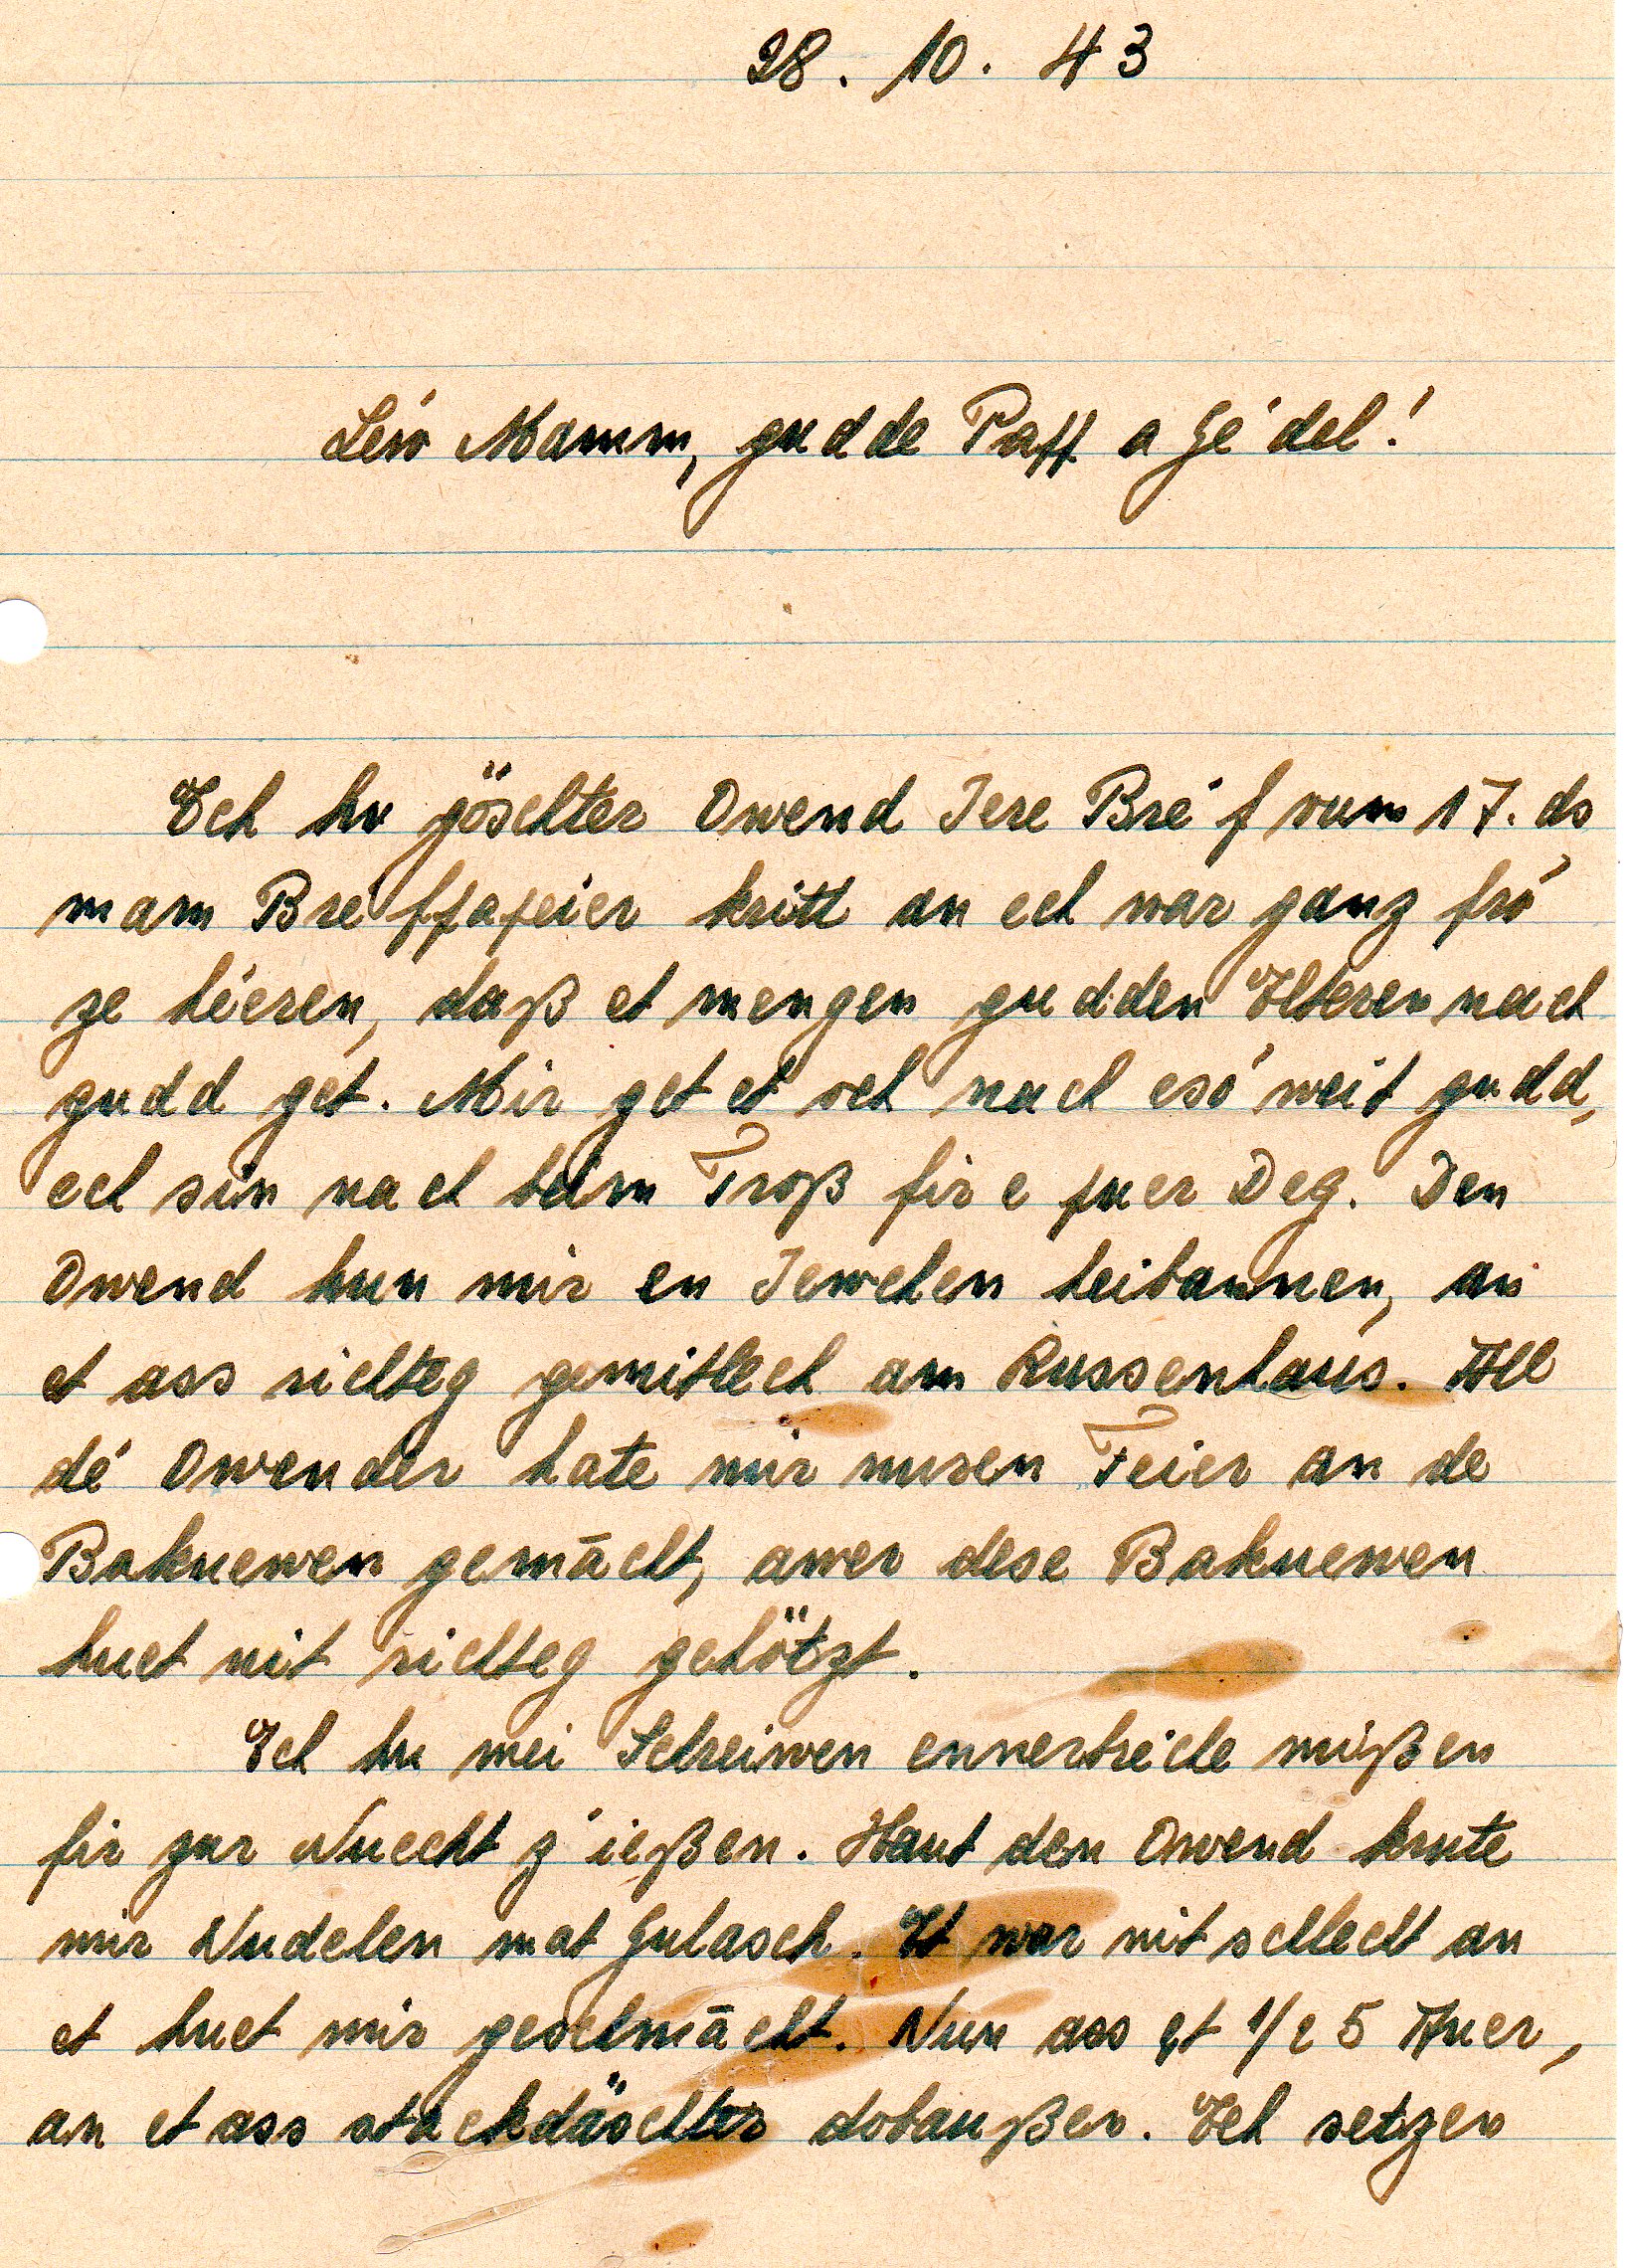 28. 10. 43
Léiv Mamm, gudde Papp a Gé'del!
Ech hu göschter Owend Iere Bré'f vum 17. ds
mam Bré'fpapeier kritt an ech war ganz fró
ze héieren, daß et mengen gudden Elteren nach
gudd gét. Mir get et och nach esó weit gudd,
ech sin nach beim Troß fir e puer Deg. Den
Owend hun mir en Iewchen heibannen, an
et ass richteg gemittlech am Russenhaus. All
dé Owender hate mir nusen Feier an de
Bakuewen gemācht, awer dese Bakuewen
huet nit richteg gehötzt.
Ech hu mei Schreiwen ennerbrieche mißen
fir zur Nuecht z'ießen. Haut den Owend krute
mir Nudelen mat Gulasch. Et war nit schlecht an
et huet mir geschmācht. Nun ass et 1/2 5 Auer,
an et ass stackdäschter dobaußen. Ech setzen